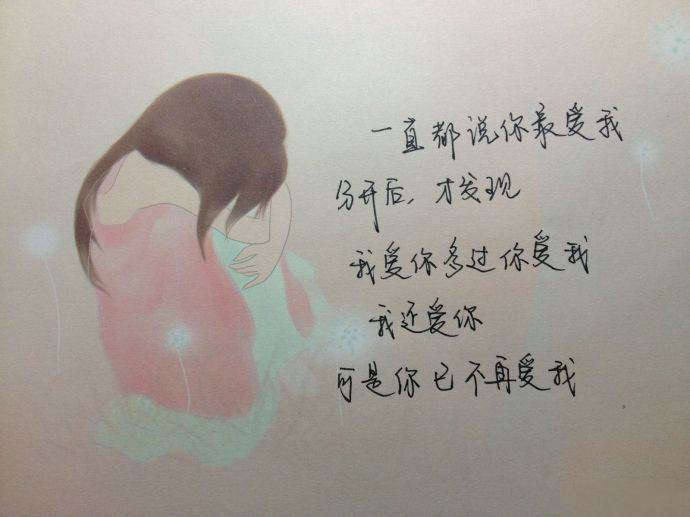 一直都说你最爱我
分开后，才发现
我爱你多过你爱我
我还爱你
可是你已不再爱我